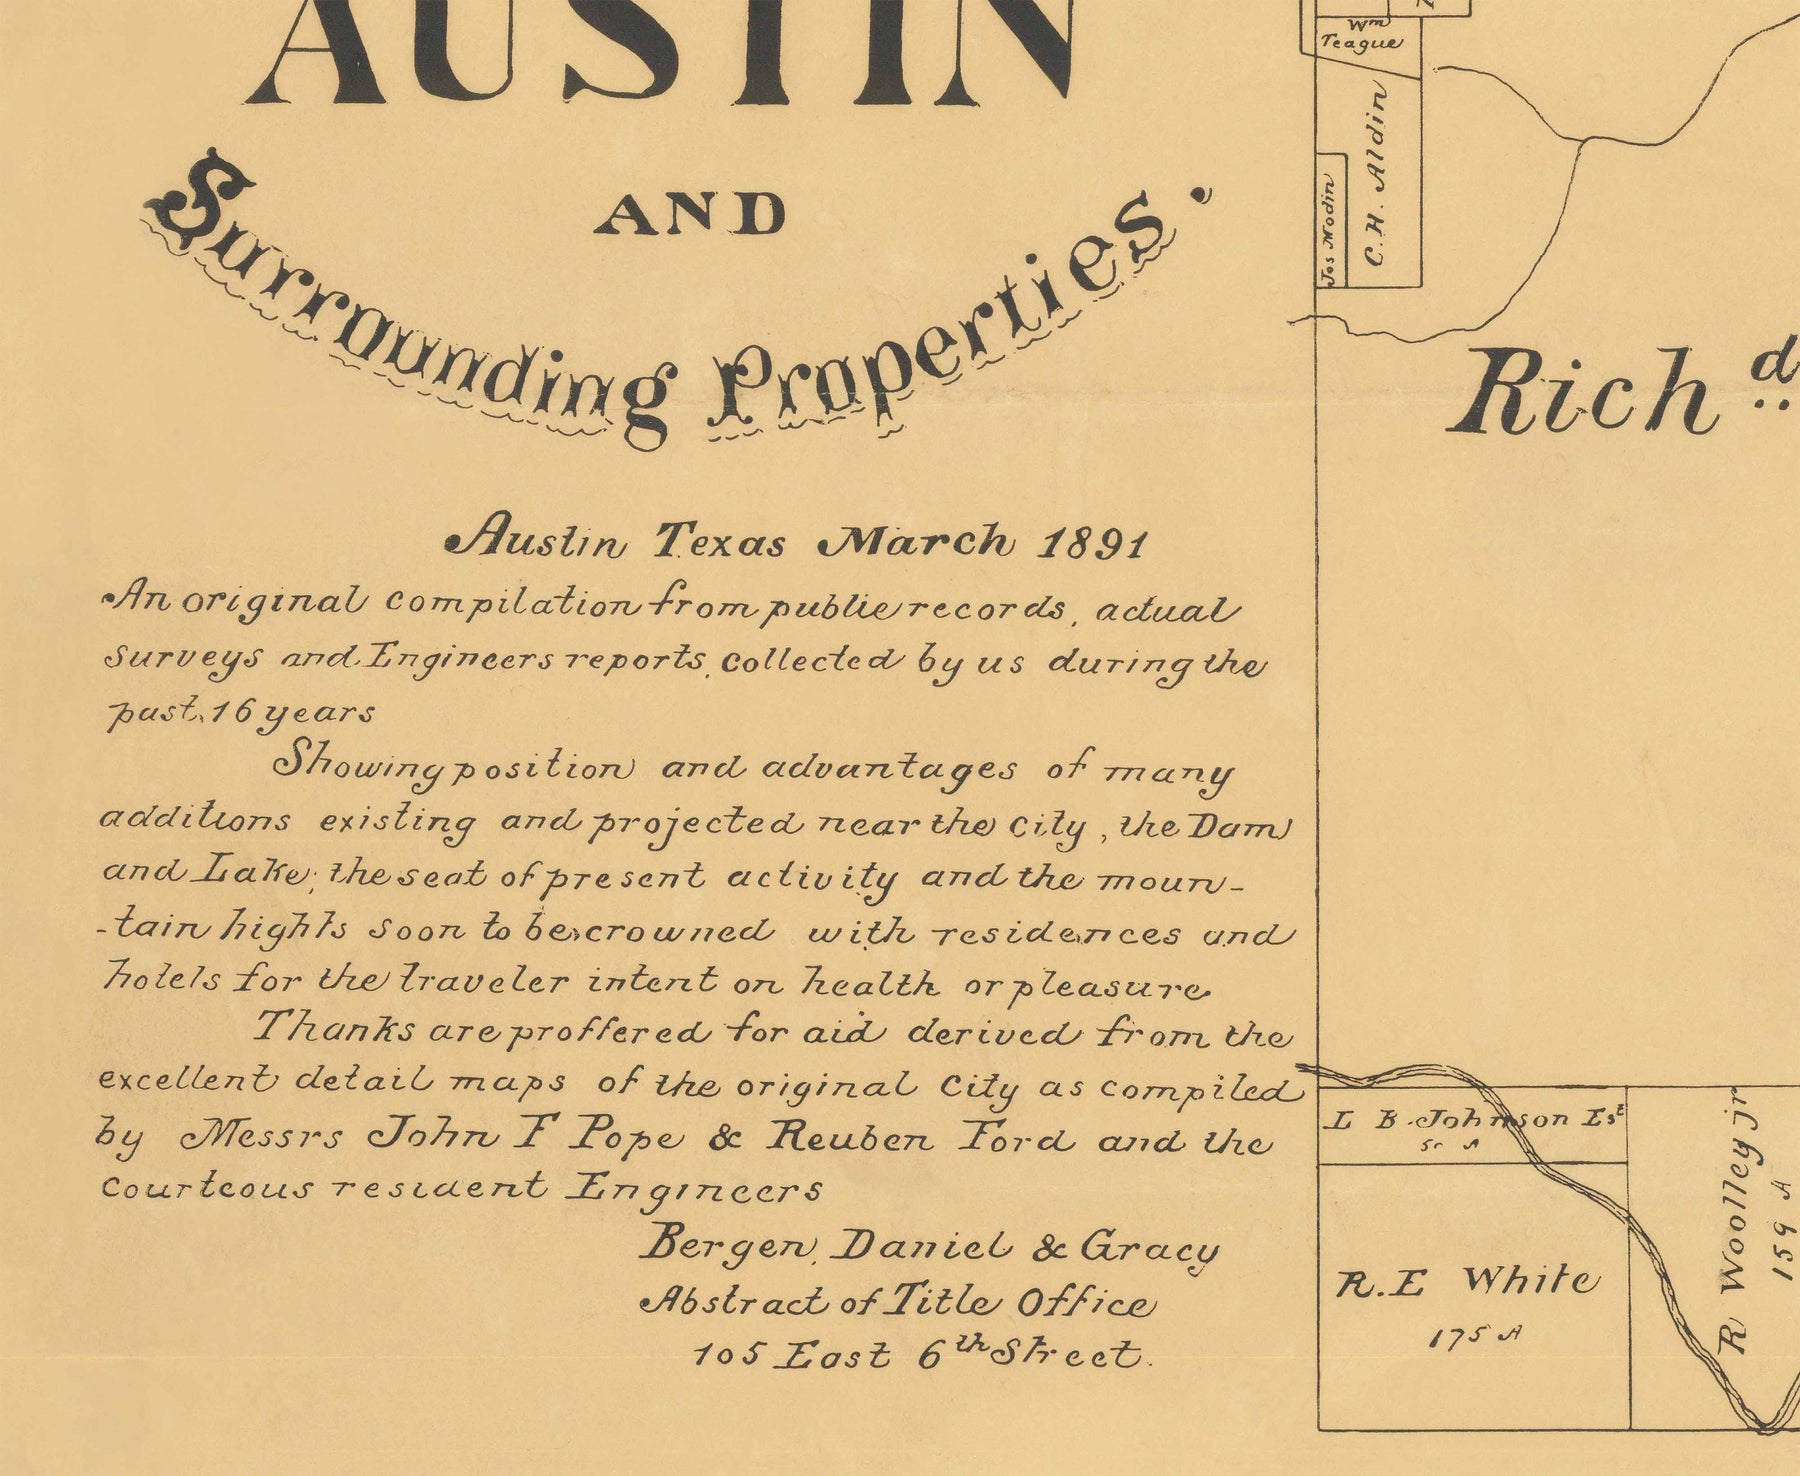 AUSTIN
AND
Surrounding Properties.
Austin Texas March 1891
An original compilation from public records, actual
surveys and Engineers reports, collected by us during the
past 16 years
Showing position and advantages of many
additions existing and projected near the City, the Dam
and Lake; the seat of present activity and the moun-
-tain hights soon to be crowned with residences and
hotels for the traveler intent on health or pleasure
Thanks are proffered for aid derived from the
excellent detail maps of the original City as compiled
by Messrs John F Pope & Reuben Ford and the
courteous resident Engineers
Bergen, Daniel & Gracy
Abstract of Title Office
105 East 6th Street.
Wm
Teague
C.H. Aldin
Jos Nodin
Rich d
L B Johnson Est
A
R.E White
175 A
R Woolley jr
159 A